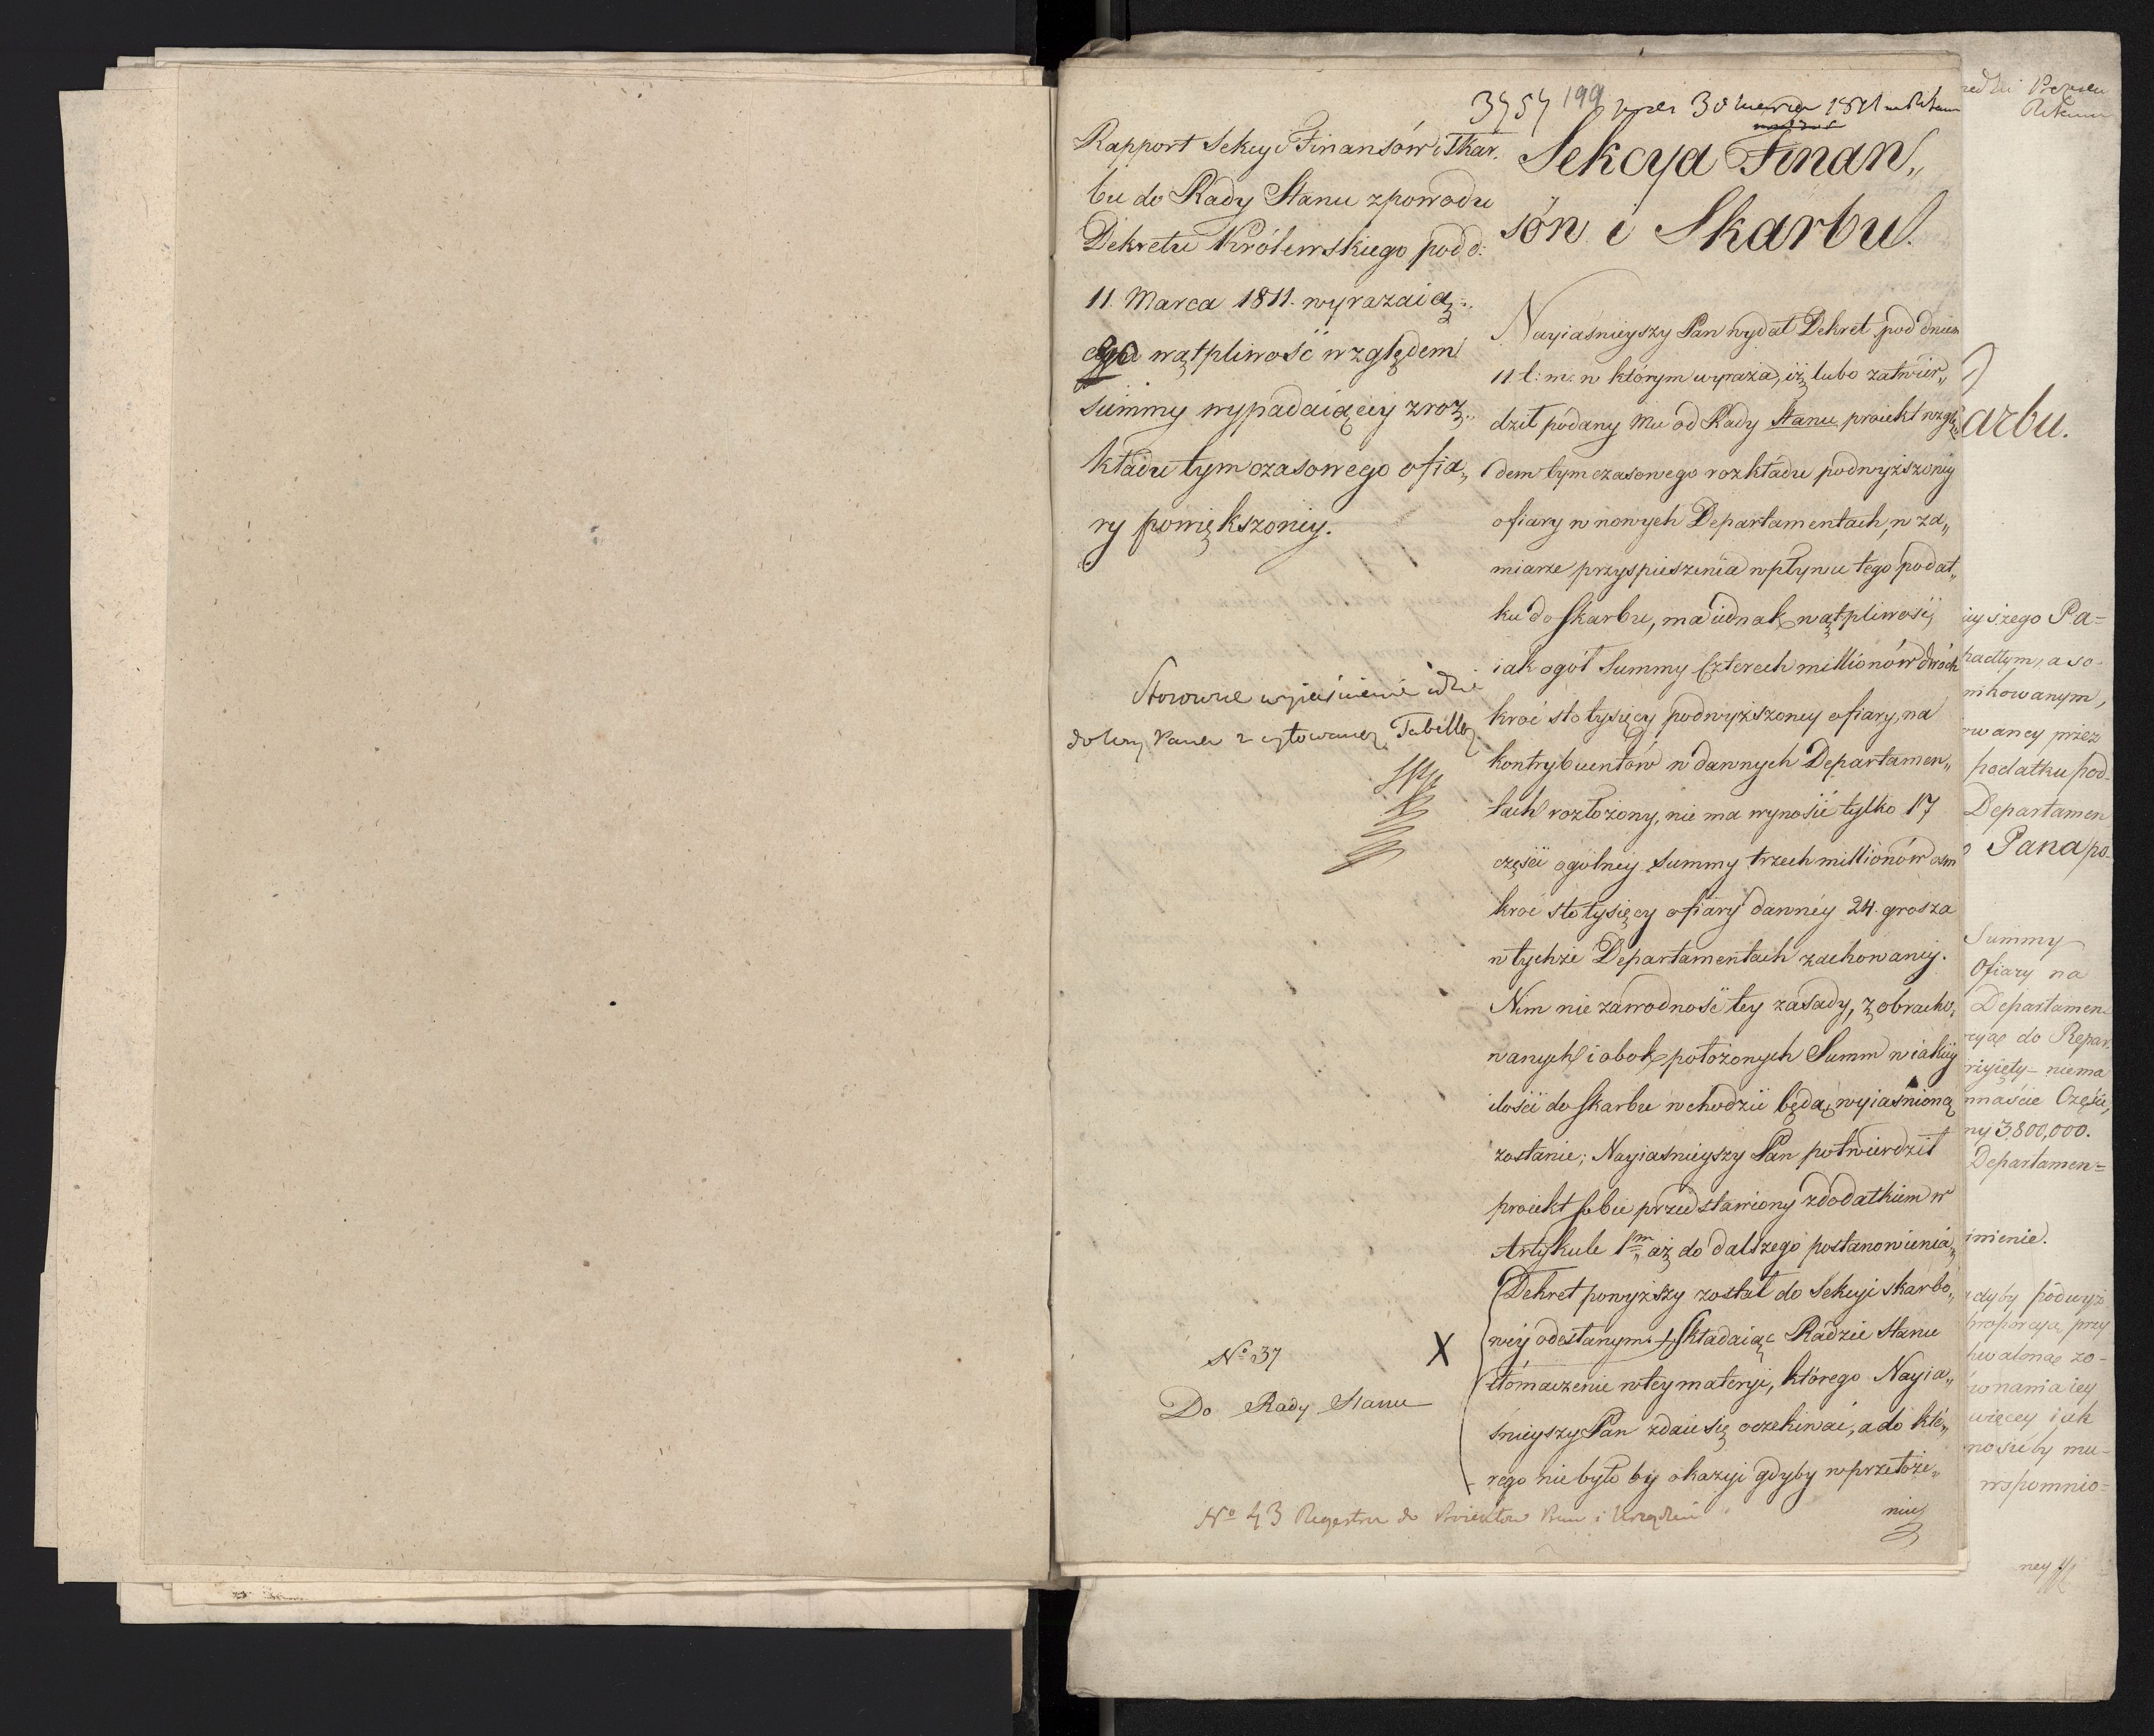 3757 199 30 1811
Rapport Sekcyi Finansów i Skar„
bu do Rady Stanu z powodu
Dekretu Królewskiego pod d:
11. Marca 1811. wyrazaią„
cego wątpliwość względem
summy wypadaiącéy z roz„
kładu tymczasowego ofia„
ry powiększonéy.
Stosowne wyjaśnienie idzie
Tabelle
No 37
Do Rady Stanu
No 43 Regestru do i Urządzeń
Sekcya Finan„
sów i Skarbu.
Nayiaśnieyszy Pan wydał Dekret pod dniem
11. t: m: w którym wyraża, iż lubo zatwier„
dził podany Mu od Rady Stanu proiekt wzglę„
dem tymczasowego rozkładu podwyższonéy
ofiary w nowych Departamentach, w za„
miarze przyspieszenia wpływu tego podat„
ku do Skarbu, ma iednak wątpliwość,
iak ogół Summy czterech millionów dwóch
kroć sto tysięcy podwyższoney ofiary, na
kontrybuentów w dawnych Departamen„
tach rozłożony, nie ma wynosić tylko 17
części ogólnéy Summy trzech millionów osm
kroć sto tysięcy ofiary dawnéy 24. grosza
w tychże Departamentach zachowanéy.
Nim niezawodność tey zasady, z obracho„
wanych i obok położonych Summ w iakiéy
ilości do Skarbu wchodzić będą, wyiaśnioną
zostanie; Nayiaśnieyszy Pan potwierdził
proiekt sobie przedstawiony z dodatkiem w
Artykule 1m „aż do dalszego postanowienia„
Dekret powyższy został do Sekcyi Skarbo„
wéy odesłanym. Składaiąc Radzie Stanu
X
tłomaczenie w tey materyi, którego Nayia„
śnieyszy Pan zdaie się oczekiwać, a do któ„
rego nie było by okazyi gdyby w przełoże„
niu
arbu.
iszego Pa=
padłym, a so-
nikowanym,
wancy przez
podatku pod-
Departamen
Pana po-
Summy
Ofiary na
Departamen-
cyą do Repar-
niema
nnaście Części,
ny 3,800,000.
Departamen=
inienie.
gdyby podwyż
proporcya przy
hwaloną zo-
wnania iey
więcey iak
nosiłby mu-
wspomnio=
ney